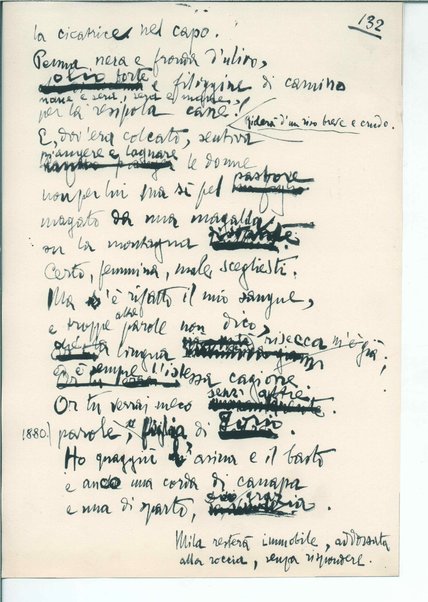 132
la cicatrice nel capo.
Penna nera e fronda d'ulivo,
olio forte e filiggine di camino
mane e sera, sera e mane
per la resipola cane!
Riderà d'un riso breve e crudo.
E, dov'era colcato, sentiva
piangere e lagnare le donne
non per lui ma sì pel pastore
magato da una magalda
su la montagna
Certo, femmina, male scegliesti.
Ma s'è rifatto il mio sangue,
e troppe altre parole non dico,
la lingua risecca m'è già,
è sempre l'istessa cagione.
Or tu verrai meco senz'altre
1880/ parole, figlia di Jorio.
Ho quaggiù l'asina e il basto
e anco una corda di canapa
e una di sparto,
Mila resterà immobile, addossata
alla roccia, senza rispondere.